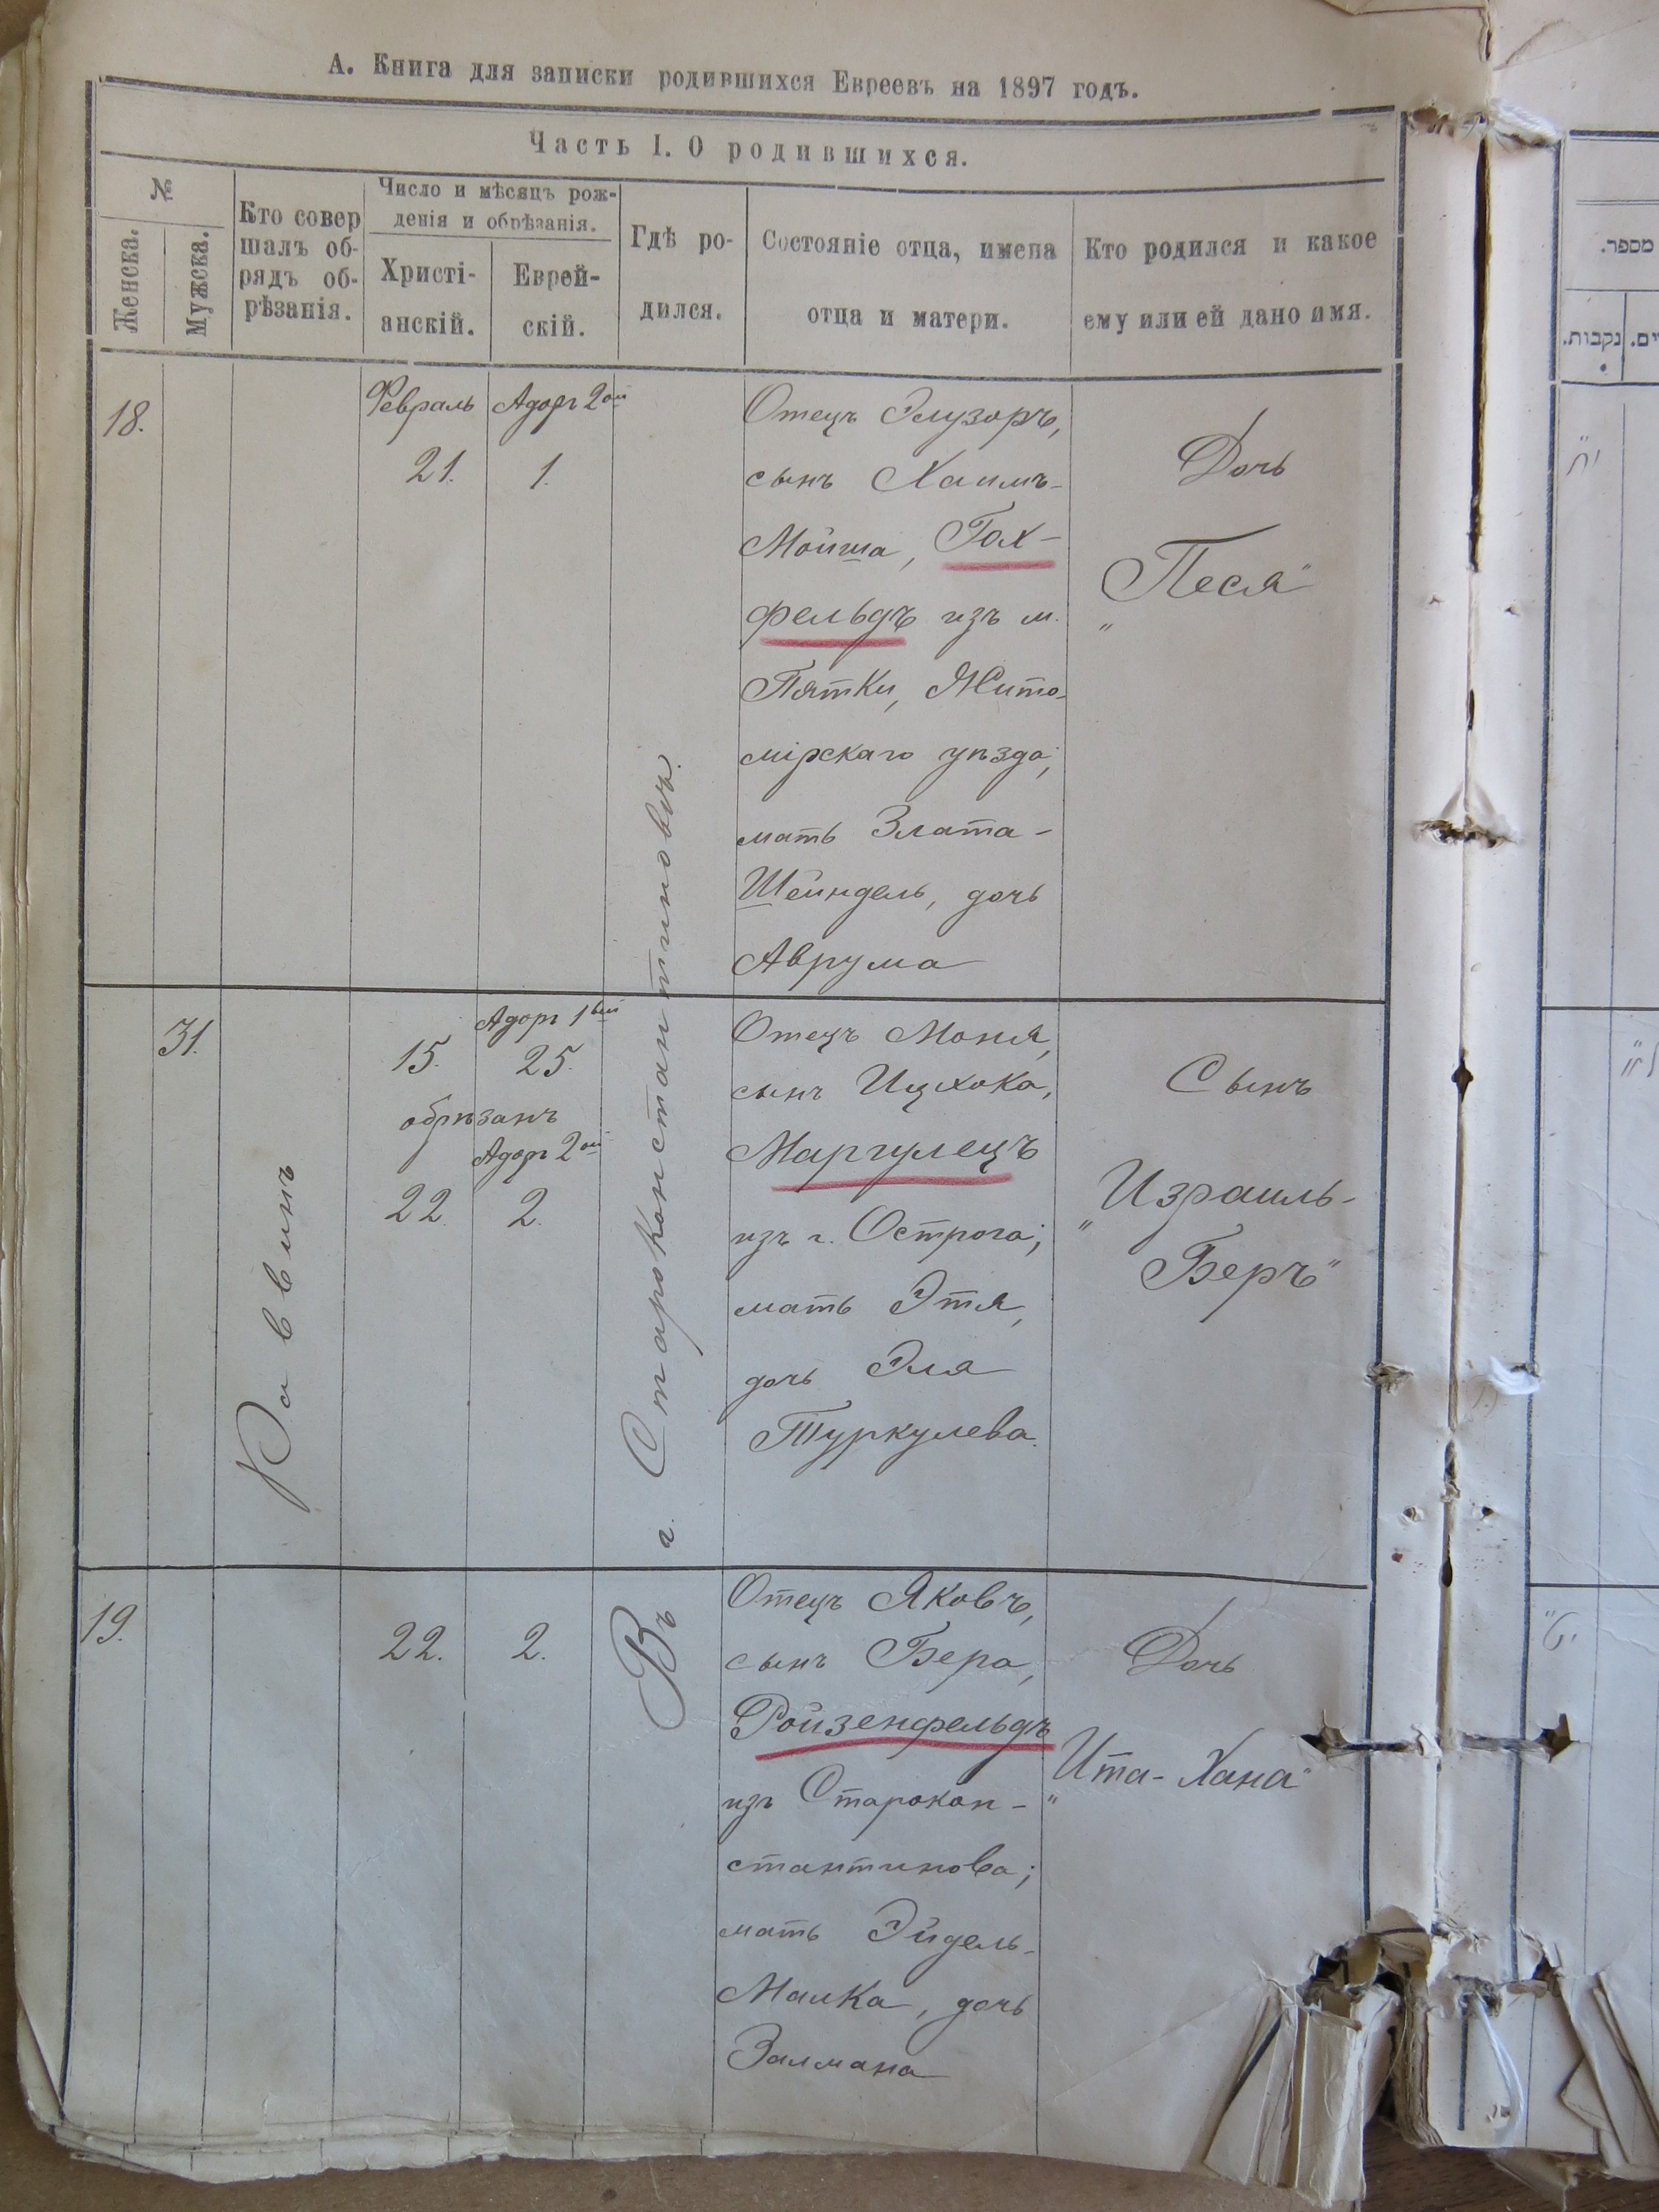 А. Книга для записки родившихся Евреевъ на 1897 годъ.
Часть I. О родившихся.
№
Женска.
Мужска.
Кто совер
шалъ об-
рядъ об-
рѣзанія.
Число и мѣсяцъ рож-
денія и обрѣзанія.
Христі-
анскій.
Еврей-
скій.
Гдѣ ро-
дился.
Состояніе отца, имена
отца и матери.
Кто родился и какое
ему или ей дано имя.
18.
Февраль
21.
Адоръ 2ой
1.
Отецъ Элузоръ,
сынъ Хаимъ-
Мойша, Гох-
фельдъ изъ м.
Пятки, Жито-
мірскаго уѣзда;
мать Злата-
Шейндель, дочь
Аврума
Дочь
"Песя"
31.
Раввинъ
15.
Адоръ 1вый
25.
обрѣзанъ
Адоръ 2ой
22.
2.
Въ г. Староконстантиновѣ.
Отецъ Моня,
сынъ Ицхока,
Маргулецъ
изъ г. Острога;
мать Этя,
дочь Эля
Туркулева.
Сынъ
"Израиль-
Беръ"
19.
22.
2.
Отецъ Яковъ,
сынъ Бера,
Ройзенфельдъ
изъ Старокон-
стантинова;
мать Эйдель-
Малка, дочь
Залмана
Дочь
"Ита-Хана"
מספר.
נקבות.
ים.
י"ח
ל"א
י"ט